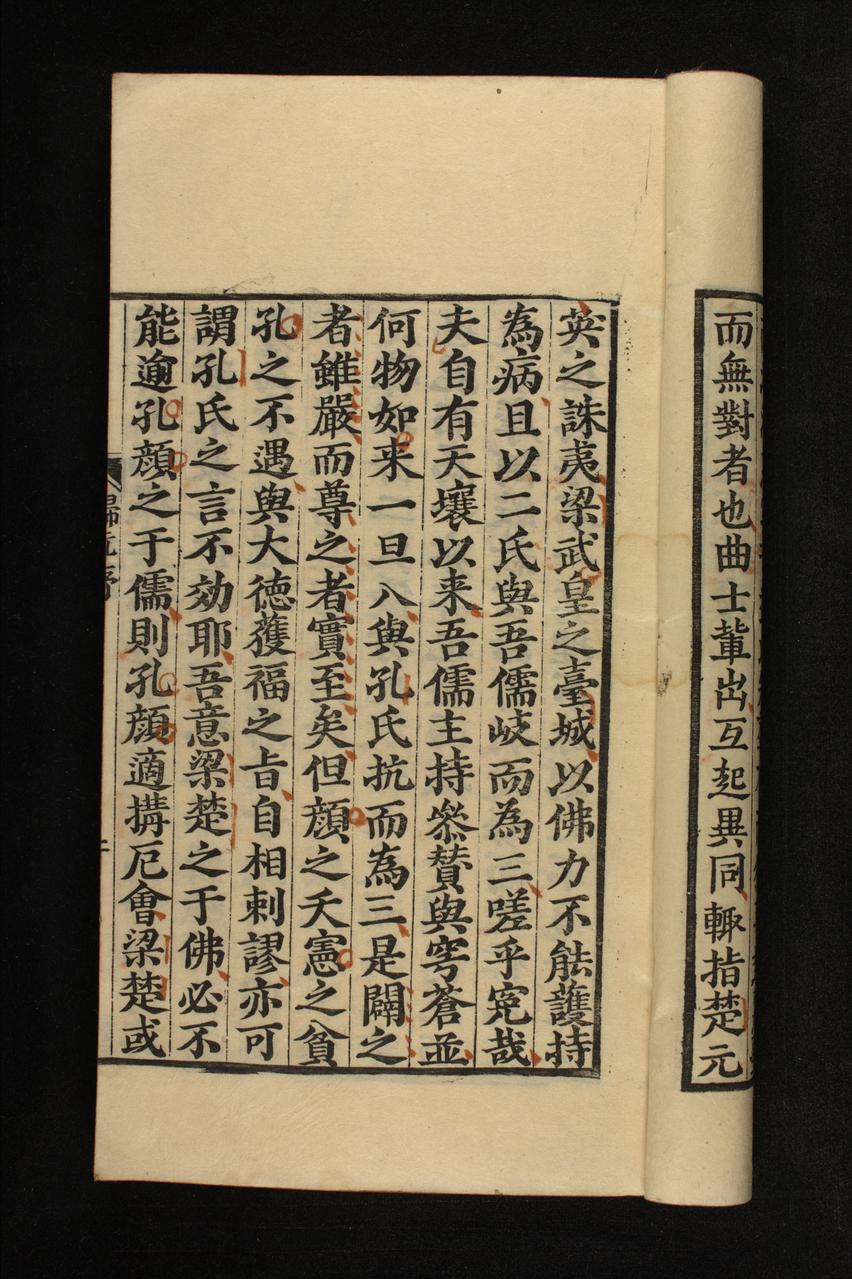 而無對者也曲士軰出互起異同輙指楚元
英之誅夷梁武皇之臺城以佛力不能護持
為病且以二氏與吾儒岐而為三嗟乎寃哉
夫自有天壤以来吾儒主持叅賛與穹蒼並
何物如来一旦入與孔氏抗而為三是闢之
者雖嚴而尊之者實至矣但顔之夭憲之貧
孔之不遇與大徳獲福之㫖自相剌謬亦可
謂孔氏之言不効耶吾意梁楚之于佛必不
能逾孔顔之于儒則孔顔適搆厄會梁楚或
歸元序